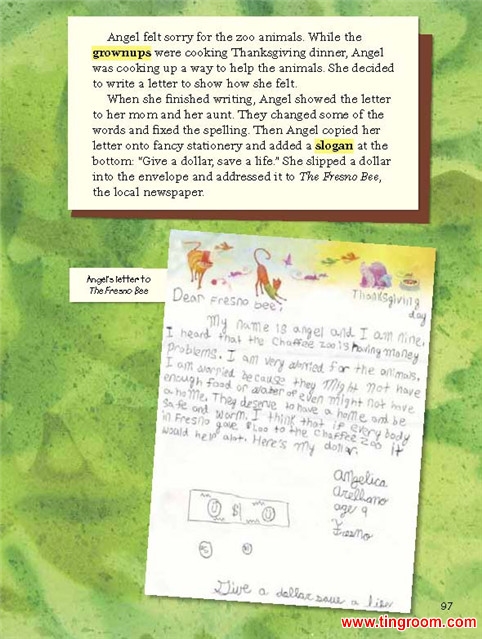 Angel felt sorry for the zoo animals. While the
grownups were cooking Thanksgiving dinner, Angel
was cooking up a way to help the animals. She decided
to write a letter to show how she felt.
When she finished writing, Angel showed the letter
to her mom and her aunt. They changed some of the
words and fixed the spelling. Then Angel copied her
letter onto fancy stationery and added a slogan at the
bottom: "Give a dollar, save a life." She slipped a dollar
into the envelope and addressed it to The Fresno Bee,
the local newspaper.
Angel's letter to
The Fresno Bee
Dear Fresno bee,
Thanksgiving
day
My name is angel and I am nine.
I heard that the Chaffee zoo is having money
problems. I am very worried for the animals.
I am worried because they might not have
enough food or water or even might not have
a home. They deserve to have a home and be
safe and worm. I think that if every body
in Fresno gave $1.00 to the Chaffee Zoo it
would help alot. Here's my dollar.
Angelica
Arellano
age 9
Fresno
$1
Give a dollar save a life
97
www.tingroom.com